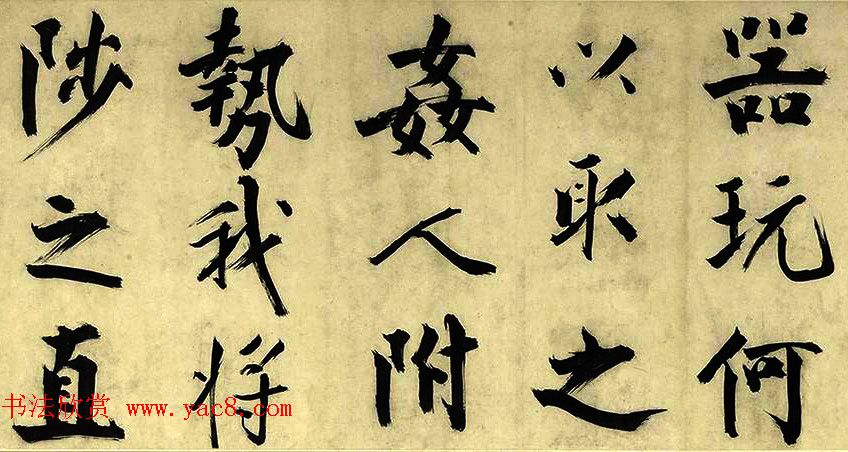 器玩何
以取之
姦人附
勢我将
陟之直
书法欣赏 www.yac8.com